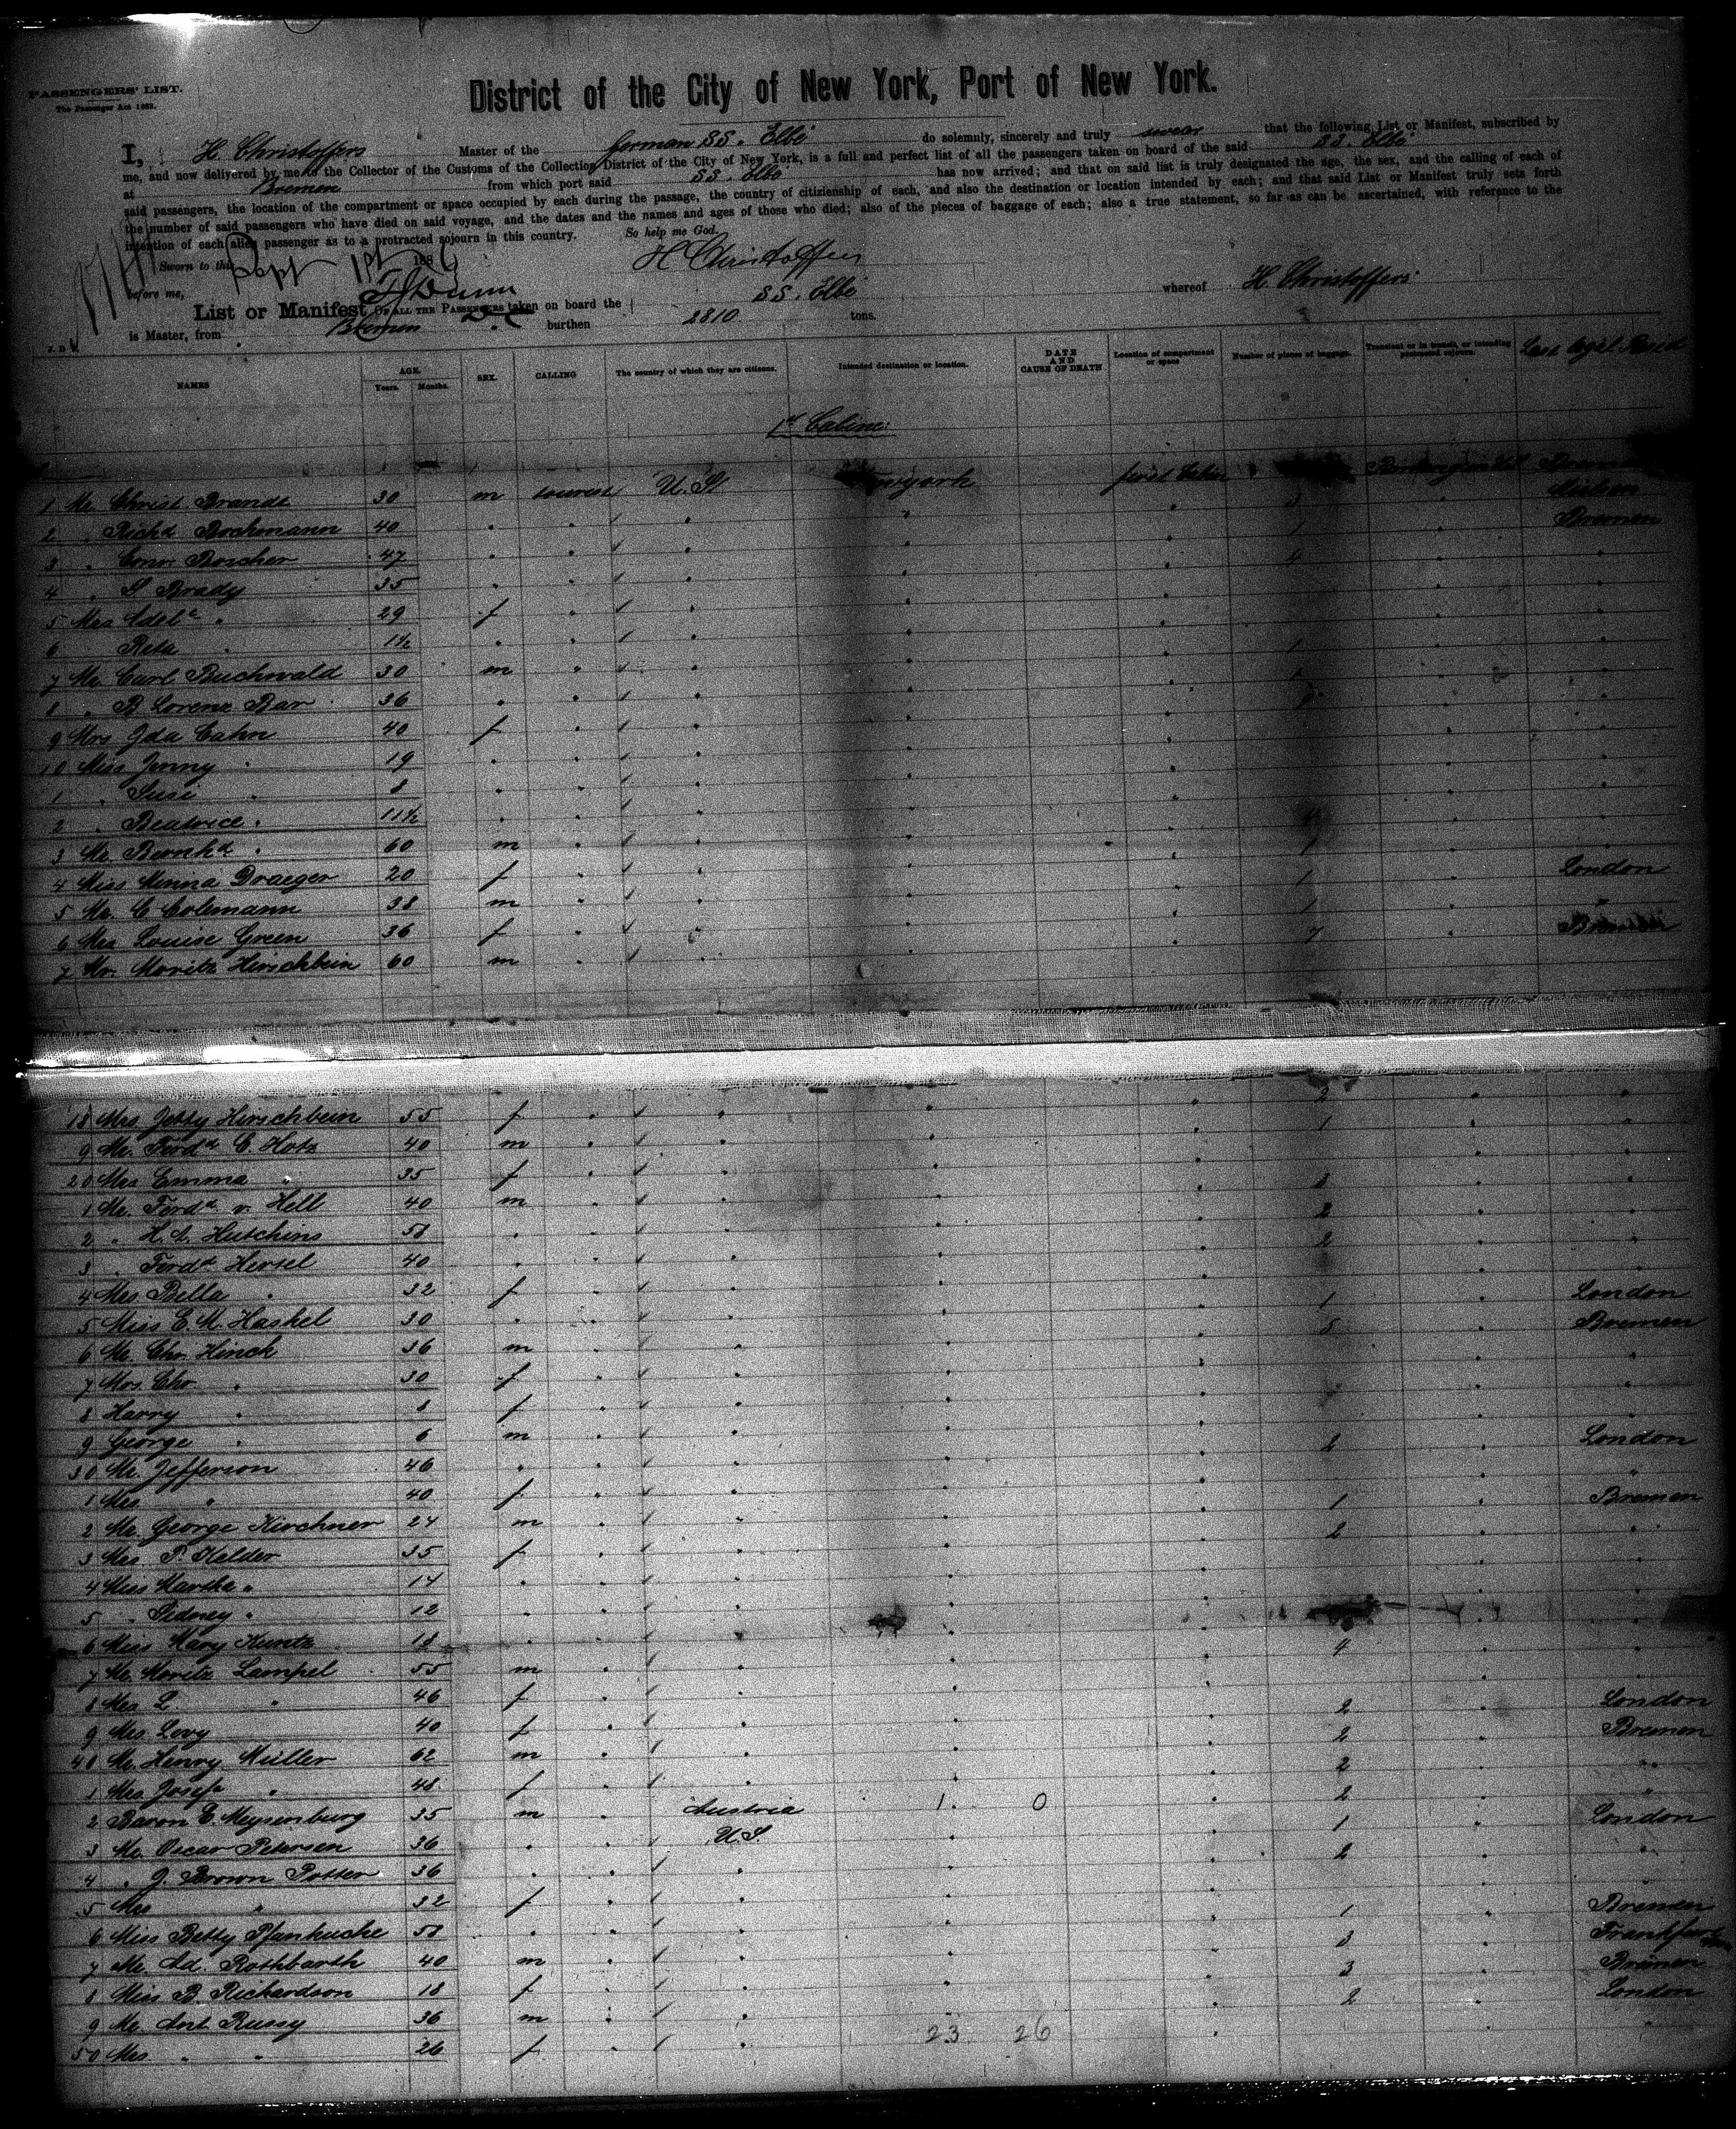 PASSENGERS' LIST.
The Passenger Act 1882.
District of the City of New York, Port of New York.
I, H. Christoffers Master of the German S.S. Elbe do solemnly, sincerely and truly swear that the following List or Manifest, subscribed by
me, and now delivered by me to the Collector of the Customs of the Collection District of the City of New York, is a full and perfect list of all the passengers taken on board of the said S.S. Elbe
at Bremen from which port said S.S. Elbe has now arrived; and that on said list is truly designated the age, the sex, and the calling of each of
said passengers, the location of the compartment or space occupied by each during the passage, the country of citizenship of each, and also the destination or location intended by each; and that said List or Manifest truly sets forth
the number of said passengers who have died on said voyage, and the dates and the names and ages of those who died; also of the pieces of baggage of each; also a true statement, so far as can be ascertained, with reference to the
intention of each alien passenger as to a protracted sojourn in this country. So help me God.
Sworn to this Sept 1st 1886 H Christoffers
before me,
List or Manifest OF ALL THE PASSENGERS taken on board the S.S. Elbe whereof H. Christoffers
is Master, from Bremen burthen 2810 tons.
NAMES AGE. Years. Months. SEX. CALLING The country of which they are citizens. Intended destination or location. DATE AND CAUSE OF DEATH Location of compartment or space Number of pieces of baggage. Transient or in transit, or intending protracted sojourn. Last legal Resid
1st Cabine:
1 Mr. Christ. Brandt 30 m tourist U. St Newyork first Cabin 3
2 " Richd Bochmann 40 " " " " " 1 " Bremen
3 " Conr. Borcher 47 " " " " " 4 " "
4 " S Brady 35 " " " " " "
5 Mrs Adele " 29 f " " " " "
6 Reta " 1½ " " " " " 1 "
7 Mr. Carl Buchwald 30 m " " " " "
8 " B Lorenz Bar 36 " " " " " "
9 Mrs Ida Cahn 40 f " " " " "
10 Miss Jenny " 19 " " " " " "
1 " Susi " 8 " " " " " "
2 " Beatrice " 11½ " " " " " "
3 Mr. Bernhd " 60 m " " " " "
4 Miss Minna Draeger 20 f " " " " 1 " London
5 Mr. C Colemann 38 m " " " " 1 " "
6 Mrs Louise Green 36 f " " " " 7 "
7 Mr. Moritz Hirschbein 60 m " " "
18 Mrs. Jetty Hirschbein 55 f " " " " 2 " "
9 Mr. Ferdd C. Hotz 40 m " " " " 1 " "
20 Mrs Emma " 35 f " " " " "
1 Mr. Ferdd v. Hell 40 m " " " " 3 " "
2 " H. A. Hutchins 58 " " " " " 2 " "
3 " Ferdd Hersel 40 " " " " " 2 " "
4 Mrs. Bella " 32 f " " " " "
5 Miss E. M. Haskel 30 " " " " " 1 " London
6 Mr. Chr. Hinck 36 m " " " " 5 " Bremen
7 Mrs. Chr. " 30 f " " " " "
8 Harry " 8 f " " " " "
9 George " 6 m " " " " "
30 Mr. Jefferson 46 " " " " " 2 " London
1 Mrs " 40 f " " " " "
2 Mr. George Kirchner 24 m " " " " 1 " Bremen
3 Mrs. P. Kelder 35 f " " " " 2 " "
4 Miss Martha " 14 " " " " "
5 " Sidney " 12 " " " " "
6 Miss Mary Kuntz 18 " " " " "
7 Mr. Moritz Lampel 55 m " " " " 4 " "
8 Mrs L " 46 f " " " " "
9 Mrs. Lovy 40 f " " " " 2 " London
40 Mr. Henry Müller 62 m " " " " 2 " Bremen
1 Mrs. Josefa " 48 f " " " " 2 " "
2 Baron E. Meysenburg 35 m " Austria 1. 0 " 2 " "
3 Mr. Oscar Petersen 36 " " U.S. " " 1 " London
4 " J. Brown Potter 36 " " " " " 2 " "
5 Mrs " 32 f " " " " "
6 Miss Betty Pfankuche 58 " " " " " 1 " Bremen
7 Mr. Ad. Rothbarth 40 m " " " " 3 " Frankfurt
8 Miss B. Richardson 18 f " " " " 3 " Bremen
9 Mr. Ant. Russy 36 m " " " " 2 " London
50 Mrs " " 26 f " " 23 26 " "